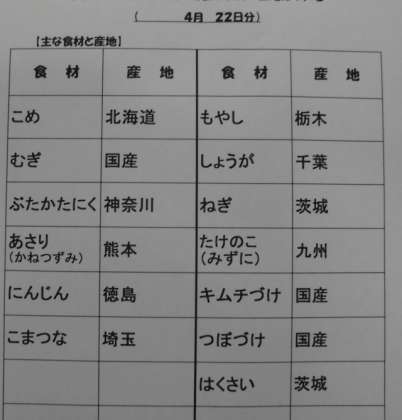 ( 4月 22日分)
【主な食材と産地】
食 材 産 地 食 材 産 地
こめ 北海道 もやし 栃木
むぎ 国産 しょうが 千葉
ぶたかたにく 神奈川 ねぎ 茨城
あさり 熊本 たけのこ 九州
(かねつずみ) (みずに)
にんじん 徳島 キムチづけ 国産
こまつな 埼玉 つぼづけ 国産
はくさい 茨城